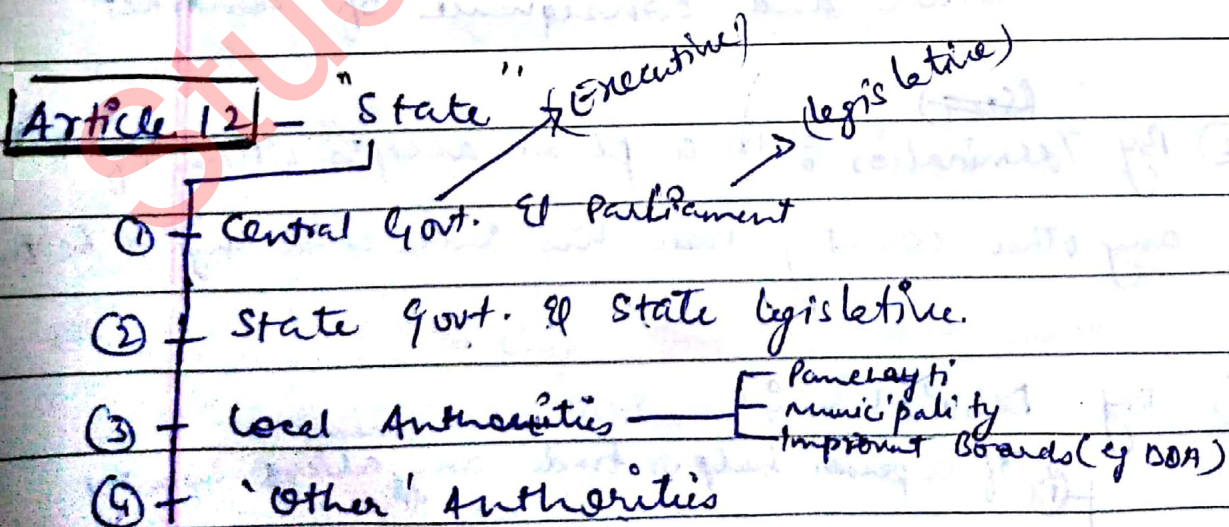 Article 12 - "State"
(Executive)
(legislative)
① Central Govt. & Parliament
② State Govt. & State legislative.
③ Local Authorities
Panchayti
Municipality
Improvnt Boards (eg DDA)
④ 'Other' Authorities
① By
any other
Stu